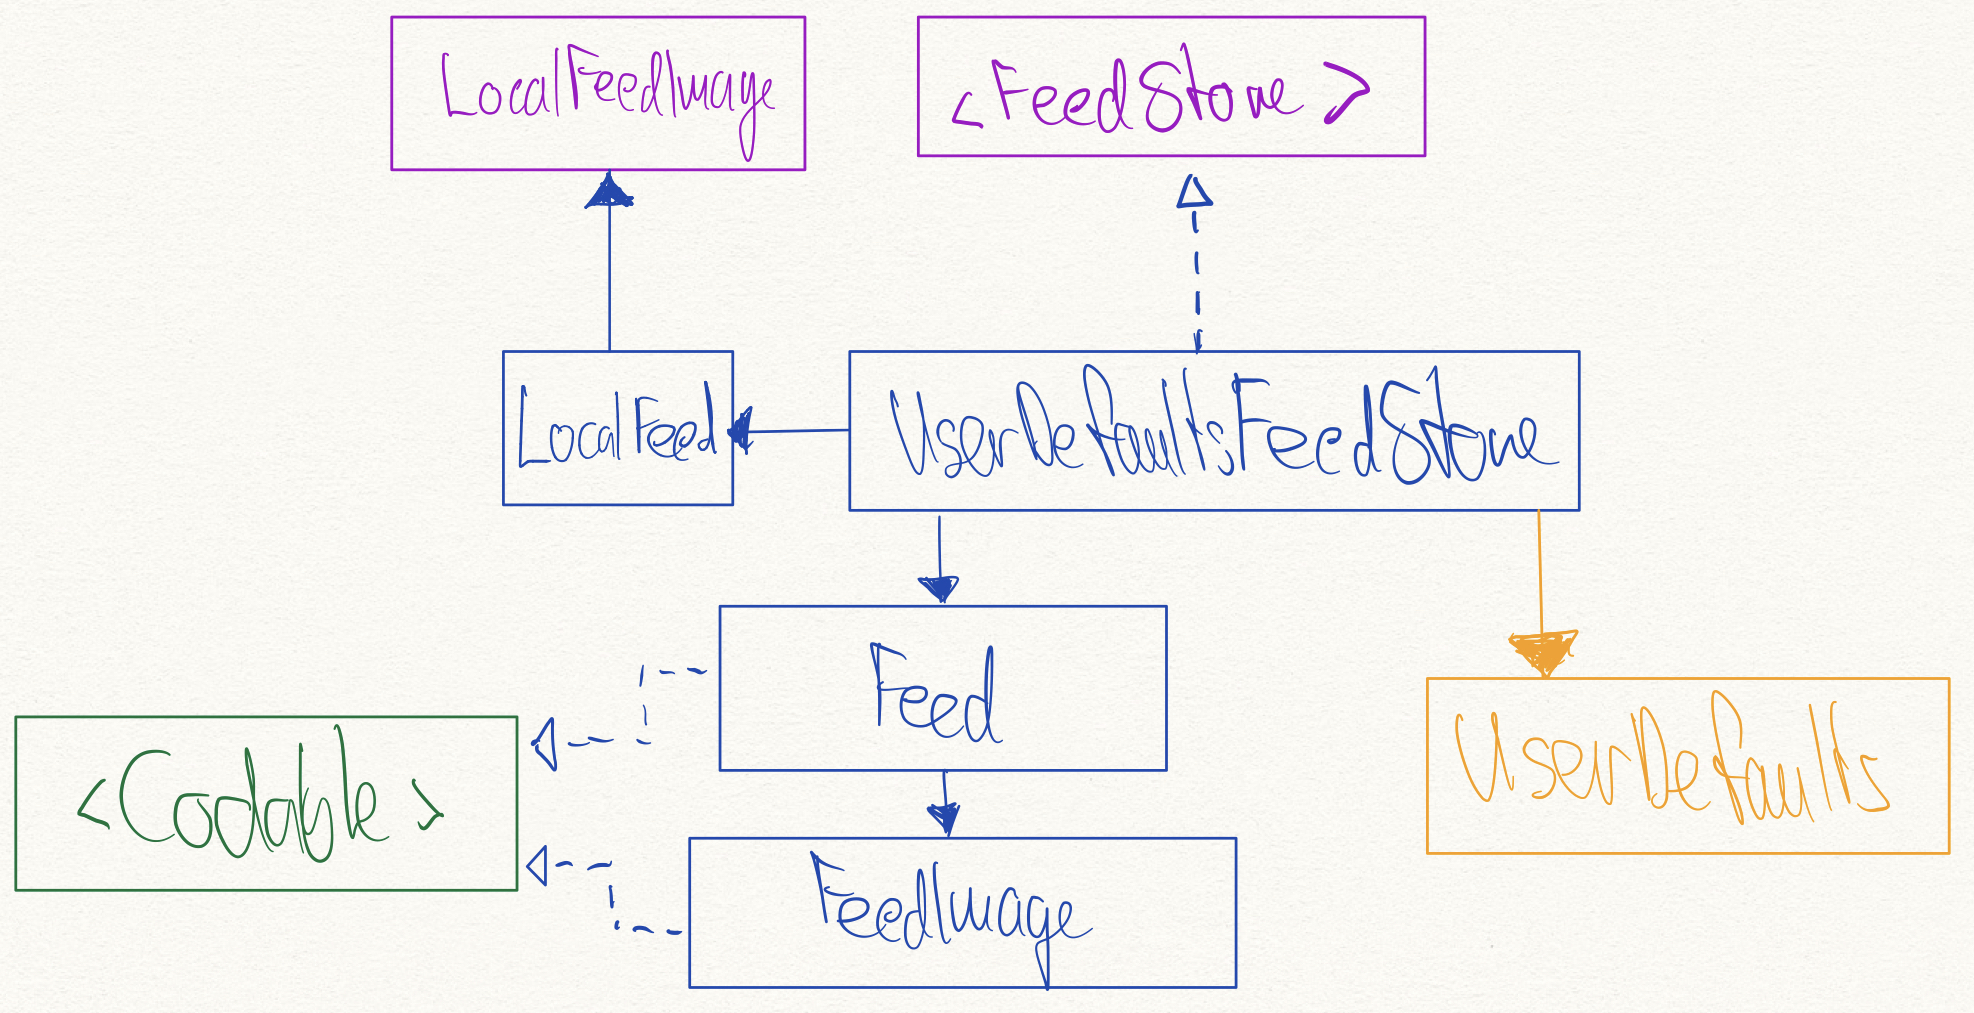 LocalFeedImage
<FeedStore>
LocalFeed
UserDefaultsFeedStore
Feed
<Codable>
UserDefaults
FeedImage